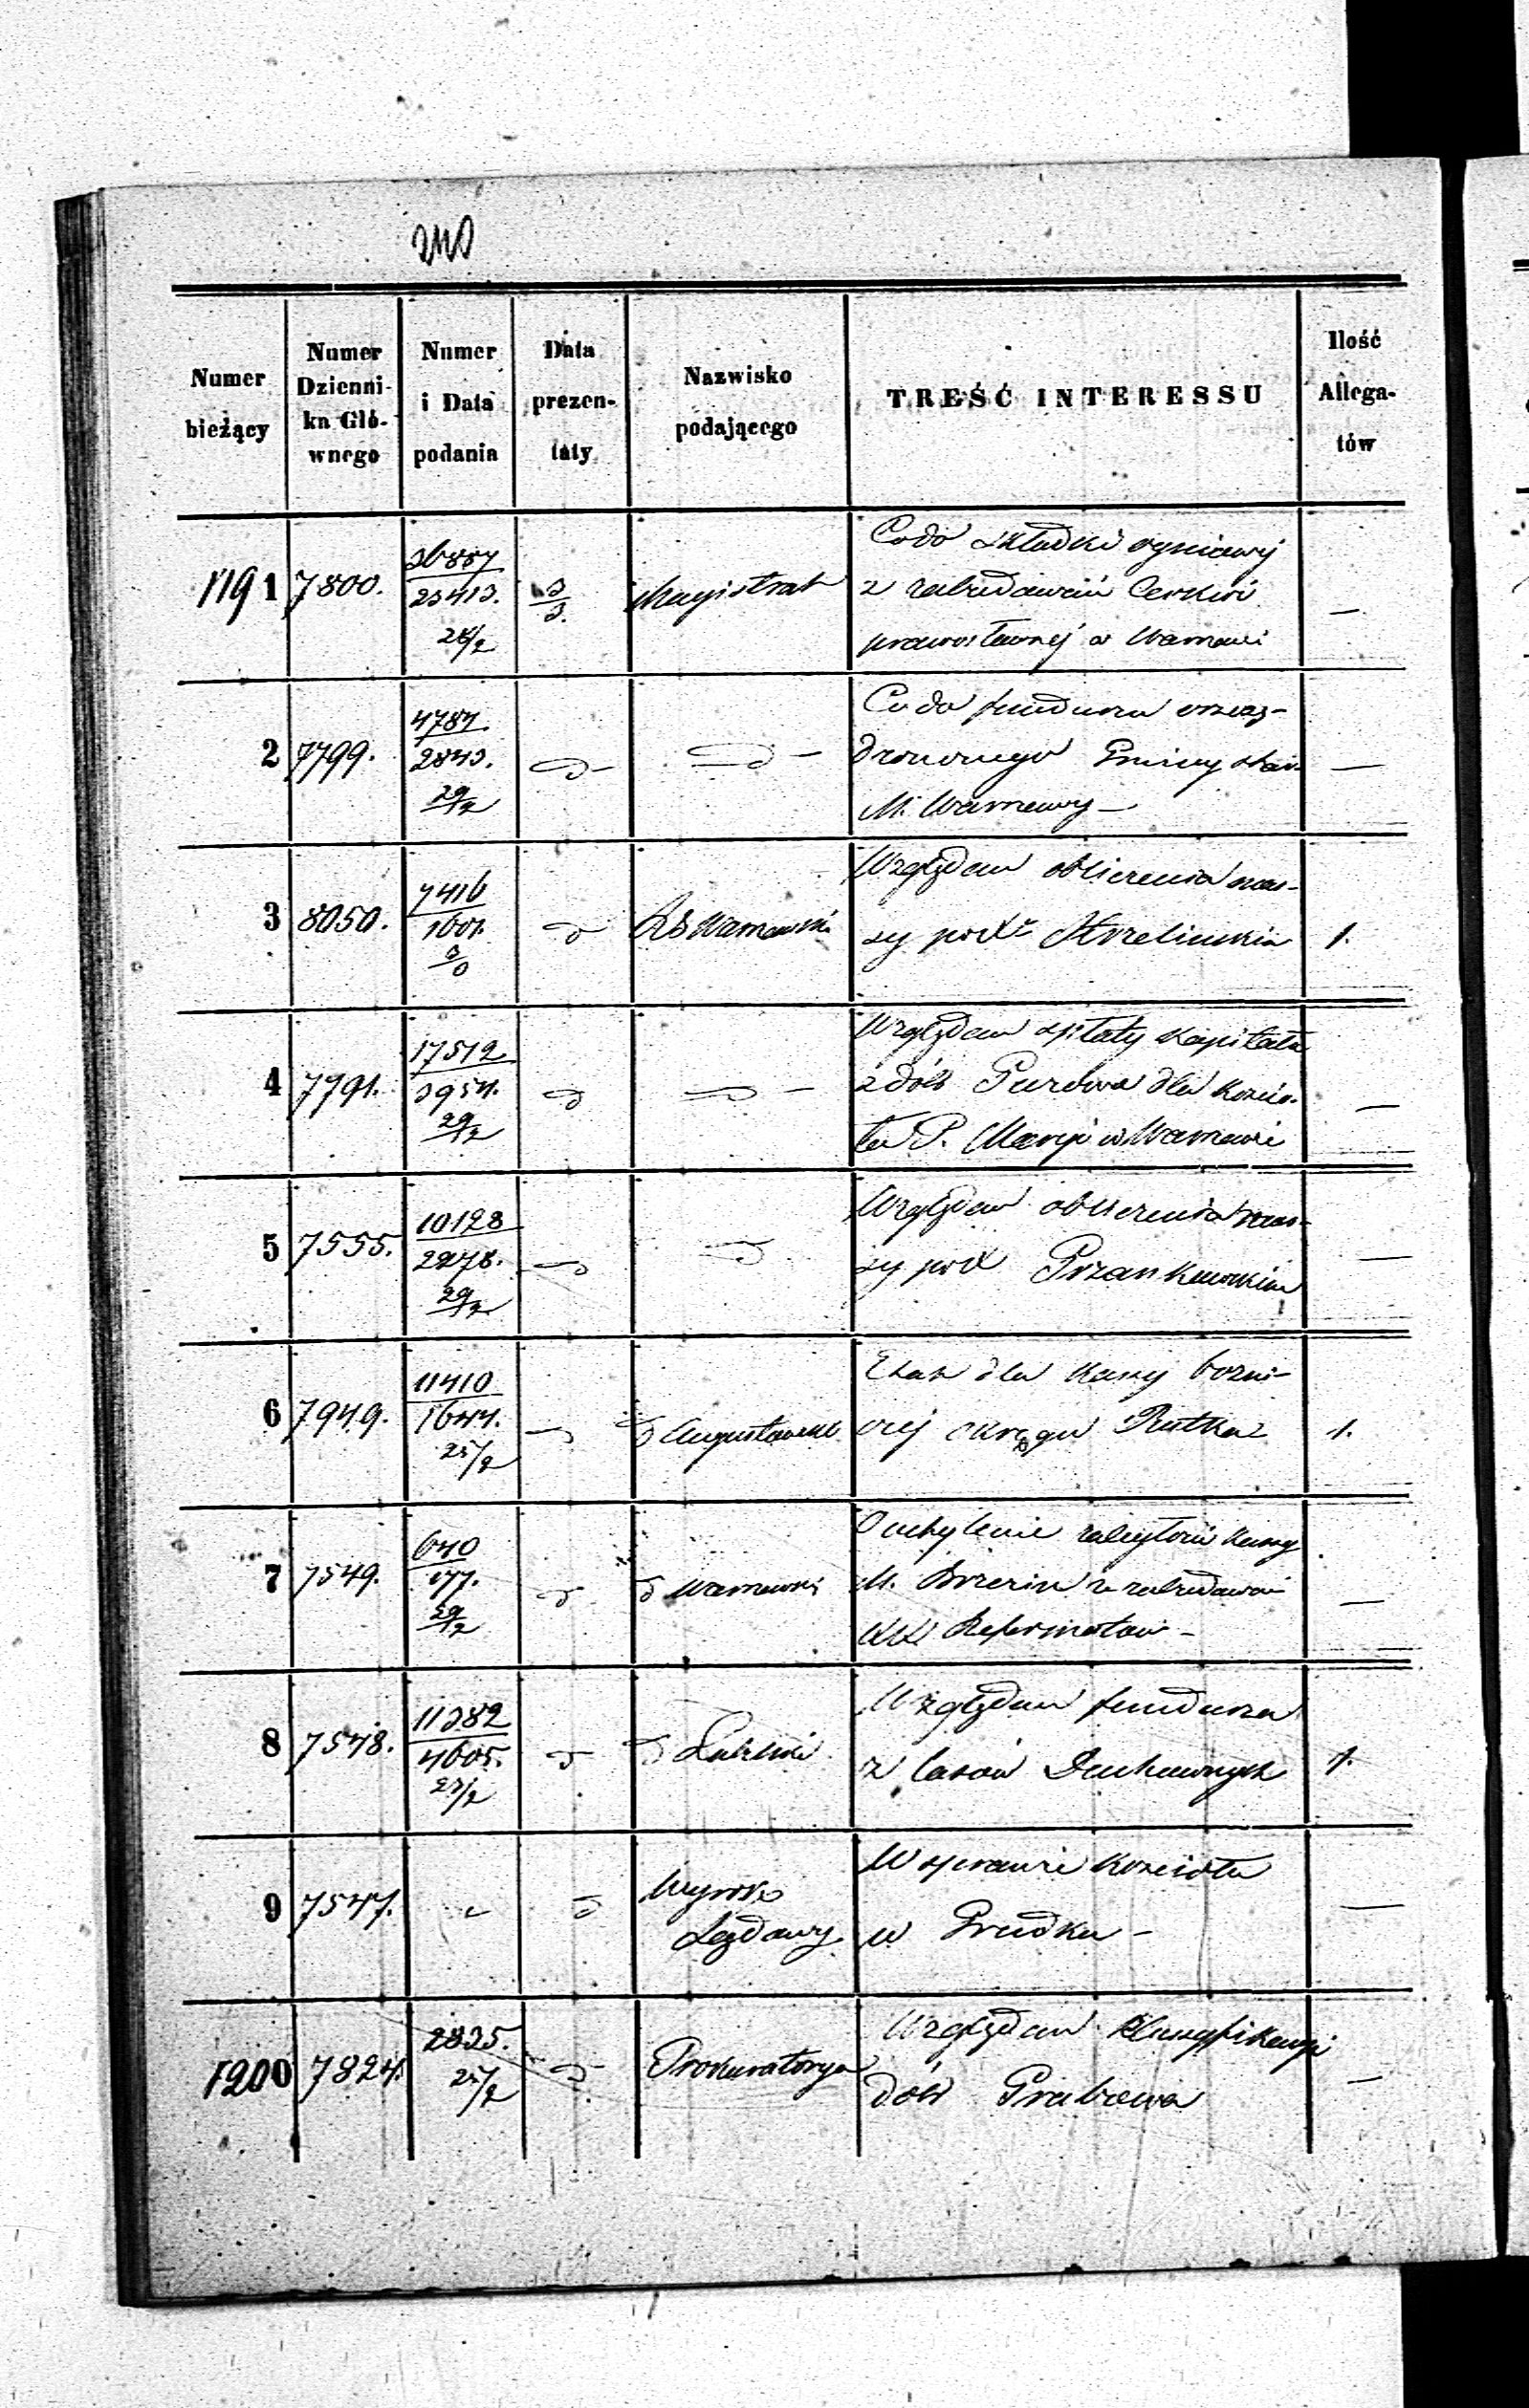 240
Numer bieżący
Numer Dzienni-ka Głó-wnego
Numer i Data podania
Data prezen-taty
Nazwisko podającego
TREŚĆ INTERESSU
Ilość Allega-tów
1191 7800. 36857 / 23413. 28/2 3/3. Magistrat Co do składki ogniowej —
z zabudowań Cerkwi
prawosławnej w Warszawie
2 7799. 4784 / 2843. 29/2 Co do funduszu
Gminy Star. —
M. Warszawy —
3 8050. 7416 / 1601. 3/3 Warszawski Względem obliczenia mas-
sy pod 1.
4 7791. 17512 / 3954. 29/2 Względem spłaty kapitału
z dóbr Purdowa dla kościo- —
ła P. Maryi w Warszawie
5 7555. 10128 / 2278. 29/2 Względem obliczenia mas-
sy pod —
6 7949. 11410 / 1644. 25/2 d Augustowski Etat dla kassy bożni-
czej okręgu Rutka 1.
7 7549. 640 / 177. 29/2 d d Warszawski O uchylenie zaległości kassy
M. Brzezin z zabudowań —
XX Reformatów —
8 7548. 11382 / 4605. 27/2 d d Lubelski Względem funduszu
z lasów Duchownych 1.
9 7547. - d Wyrok W sprawie kościoła
Sądowy w Prudku — —
1200 7824. 2835. 25/2 d Prokuratorya Względem klassyfikacyi
dóbr Grabowa —